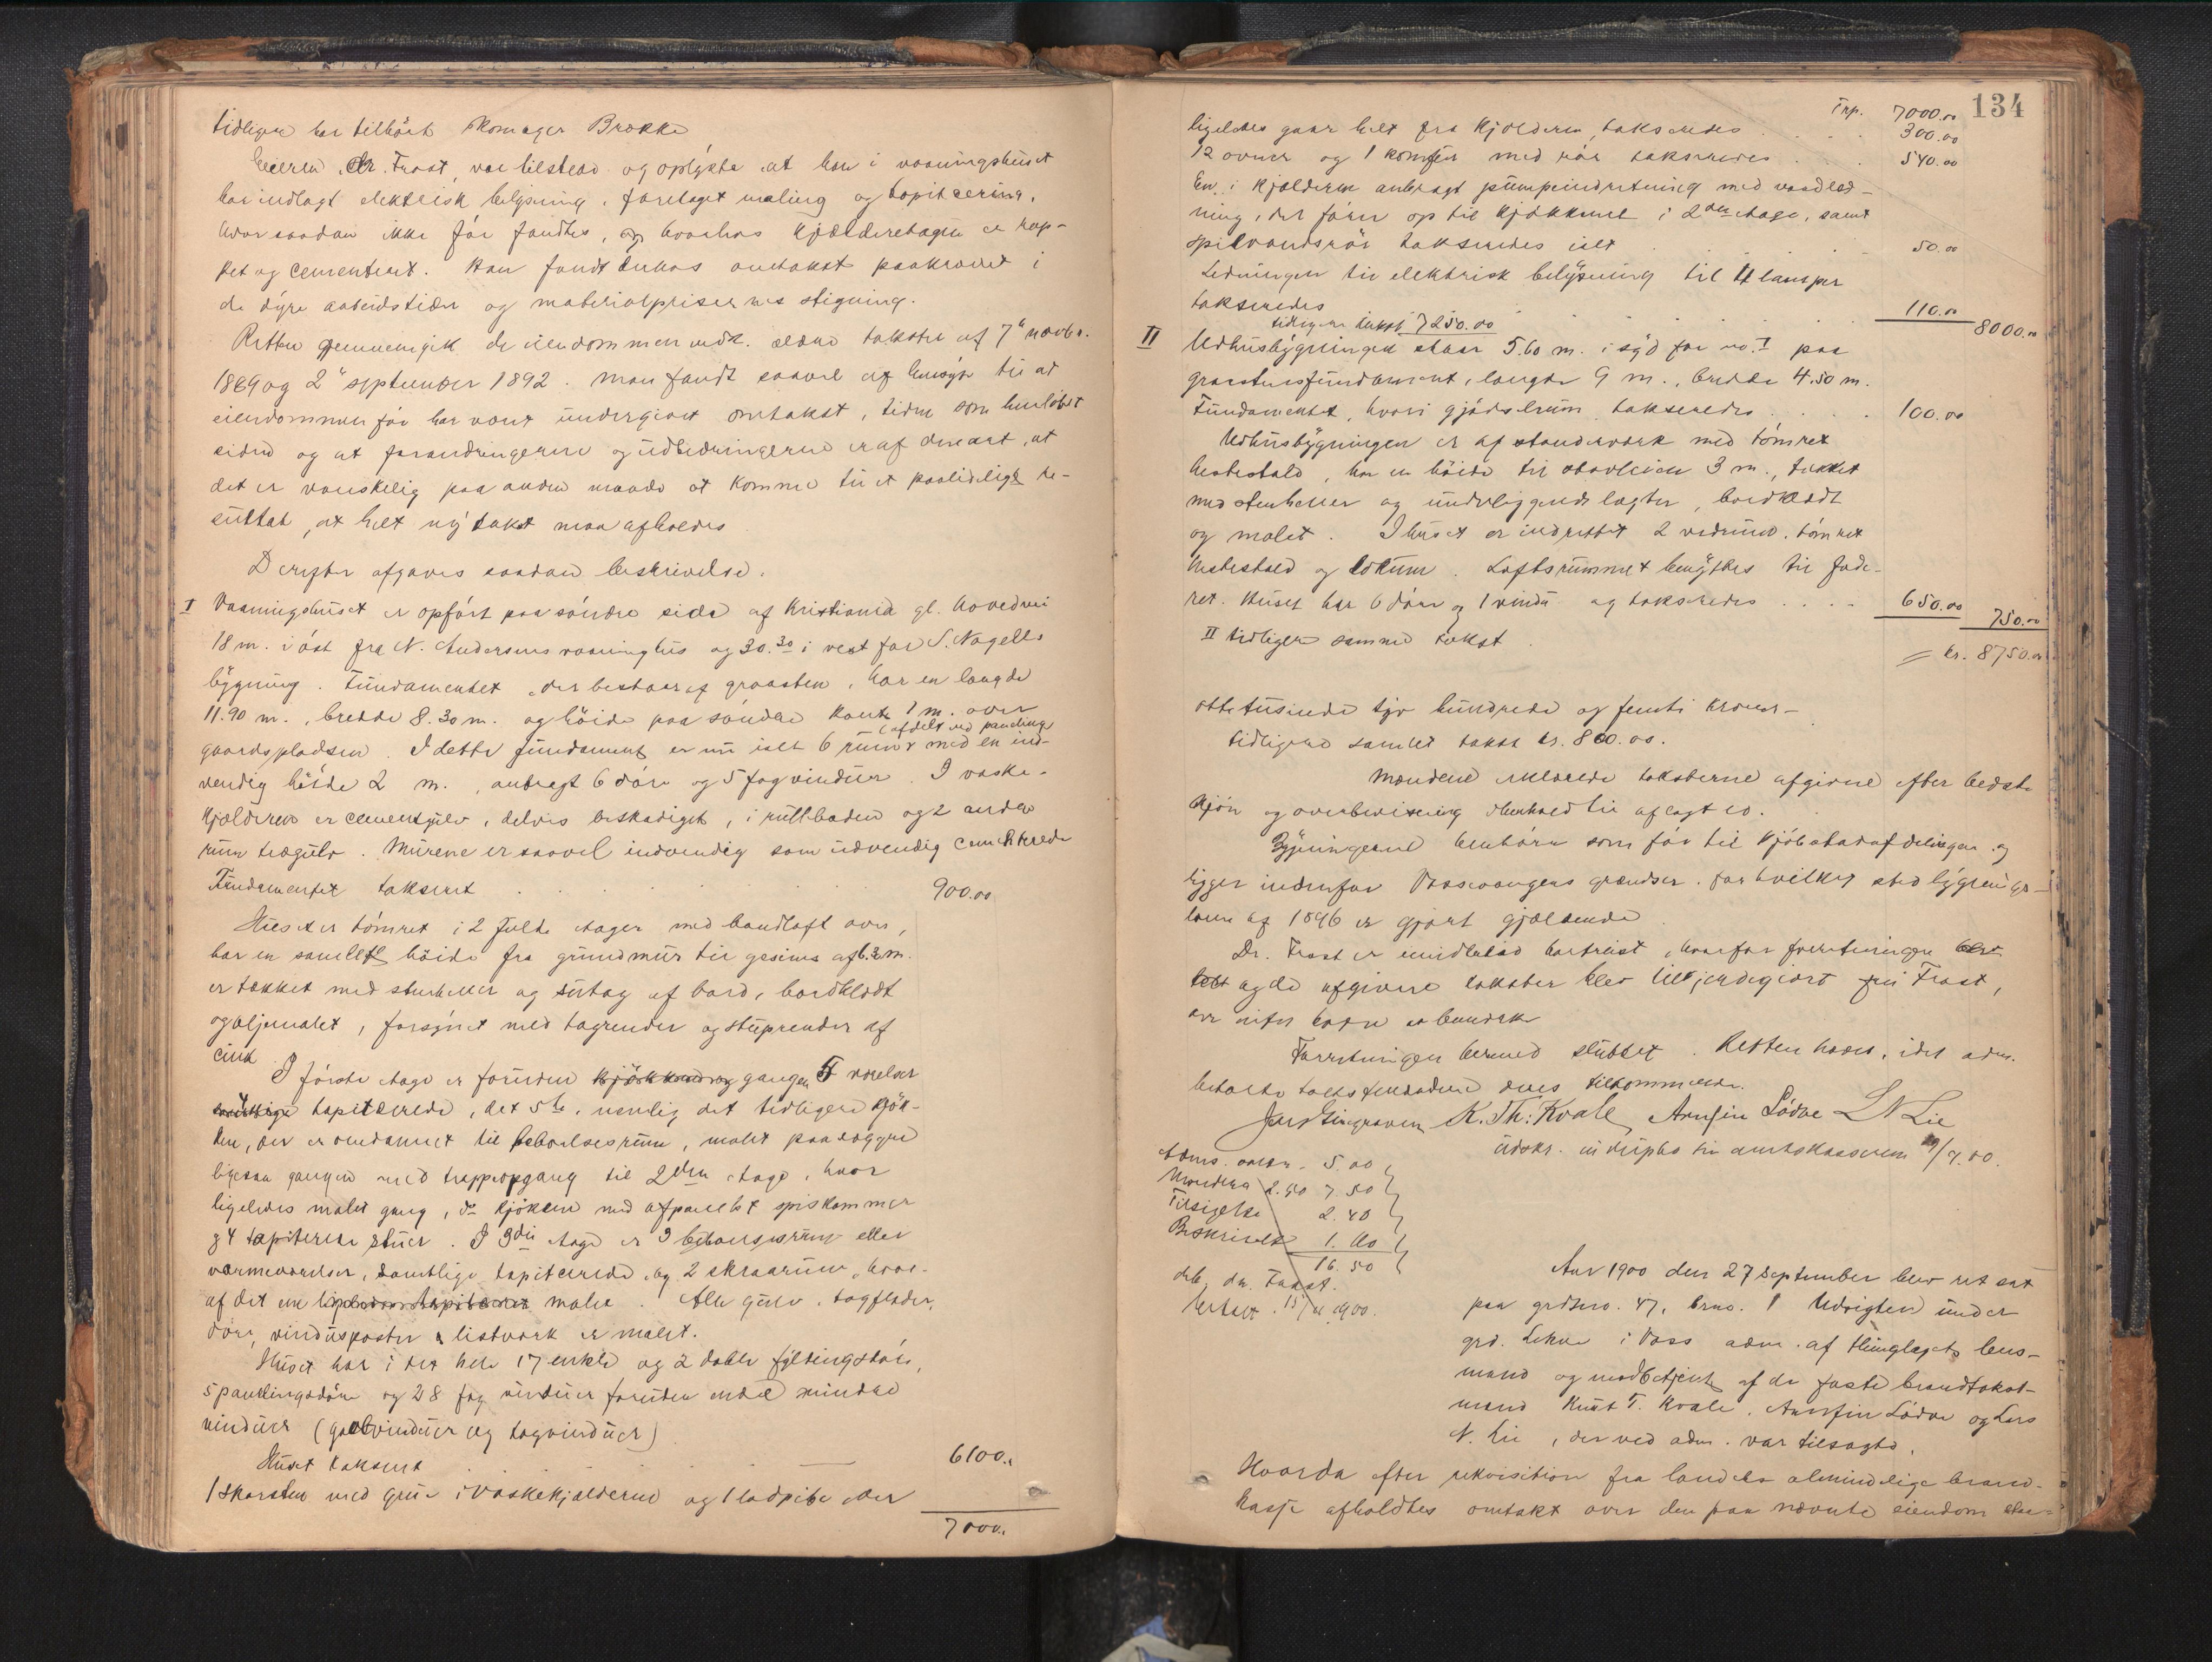 tidligere har tilhört skomager Brække
Eieren, Dr. Frost, var tilstede og oplyste at han i vaaningshuset
har indlagt elektrisk belysning, foretaget maling og tapitsering,
hvor saadan ikke för fandtes, og hvorhos kjælderetagen er rap-
pet og cementeret. Han fandt derhos omtakst paakrævet i
de dyre arbeidstider og materialprisernes stigning.
Retten gjennemgik de eiendommen vedk. ældre takster af 7de novbr.
1889 og 2den september 1892. Man fandt saavel af hensyn til at
eiendommen för har været undergivet omtakst, tiden som henlöbet
siden og at forandringerne og udbedringerne er af den art, at
det er vanskelig paa anden maade at komme til et paalideligt re-
sultat, at helt ny takst maa afholdes
Derefter afgaves saadan beskrivelse.
I Vaaningshuset er opfört paa söndre side af Kristiania gl. hovedvei
18 m. i öst fra N. Andersens vaaninghus og 30.30 i vest for S. Nagells
bygning. Fundamentet, der bestaar af graasten, har en længde
11.90 m., bredde 8.30 m. og höide paa söndre kant 1 m. over
(afdelt ved paneling)
gaardspladsen. I dette fundament er nu ialt 6 rum med en ind-
vendig höide 2 m., anbragt 6 döre og 5 fag vinduer. I vaske-
kjælderen er cementgulv, delvis beskadiget, i rullboden og 2 andre
rum trægulv. Murene er saavel indvendig som udvendig cementerede
Fundamentet takseret . . . . . 900.00
Huset er tömret i 2 fulde etager med bandloft over,
har en samlet höide fra grundmur til gesims af 6.3 m.
er tækket med stenheller og sutag af bord, bordklædt
og oljemalet, forsynet med tagrender og stuprender af
cink
I förste etage er foruden kjökken og gangen 5 værelser
samtlige tapitserede, det 5te, nemlig det tidligere kjök-
ken, der er omdannet til beboelsesrum, malet paa væggene
ligesaa gangen med trappeopgang til 2den etage, hvor
ligeledes malet gang, do kjökken med afpanelet spiskammer
og 4 tapitserede stuer. I 3die etage er 3 beboelsesrum eller
varmeværelser, samtlige tapitserede, og 2 skraarum, hvor-
af det ene ligeledes tapitseret malet. Alle gulv, tagflader,
döre, vindusposter & listværk er malet.
Huset har i det hele 17 enkle og 2 doble fyldingsdöre,
5 panelingsdöre og 28 fag vinduer foruden endel mindre
vinduer (gavlvinduer og tagvinduer)
Huset takseret . . . . 6100.
1 skorsten med grue i vaskekjælderen og 1 ladpibe der
7000.
134
Trp. 7000.00
ligeledes gaar helt fra kjælderen, takseredes . . . 300.00
12 ovner og 1 komfur med rör takseredes . . . 540.00
En i kjælderen anbragt pumpeindretning med vandled-
ning, der förer op til kjökkenet i 2den etage, samt
spilvandsrör takseredes ialt . . . 50.00
Ledningen til elektrisk belysning til 11 lamper
takseredes . . . 110.00
8000.00
tidligere takst 7250.00
II Udhusbygningen staar 5.60 m. i syd for no. I paa
graastensfundament, længde 9 m., bredde 4.50 m.
Fundamentet, hvori gjödselrum, takseredes . . . . 100.00
Udhusbygningen er af stenderværk med tömret
hestestald, har en höide til stavleien 3 m., tækket
med stenheller og underliggende lægter, bordklædt
og malet. I huset er indrettet 2 vedrum, tömret
hestestald og lokum. Loftsrummet benyttes til fode-
ret. Huset har 6 döre og 1 vindu og takseredes . . . . 650.00 750.00
II tidligere samme takst.
= kr. 8750.00
ottetusinde syv hundrede og femti kroner-
tidligere samlet takst kr. 8000.00.
Mændene erklærede taksterne afgivne efter bedste
skjön og overbevisning i henhold til aflagt ed.
Bygningerne henhörer som för til kjöbstadafdelingen og
ligger indenfor Vossevangens grændser, for hvilket sted bygnings-
loven af 1896 er gjort gjældende
Dr. Frost er imidlertid bortreist, hvorfor forretningen
og de afgivne takster blev tilkjendegivet fru Frost,
der intet havde at bemærke
Forretningen hermed sluttet. Retten hævet, idet adm.
betalte takstmændene deres tilkommende.
K. Th: Kvale Arnfin Lödve L N Lie
Udskr. in duplo til amtskassereren /9.00.
Adms. 5.00
Mændene 2.50 7.50
Tilsigelse 2.40
Beskrivelse 1.60
16.50
deb. dr. Frost.
betalt 15/11 1900.
Aar 1900 den 27 september blev ret sat
paa grdsno. 47, brno. 1 Udsigten under
grd. Lekve i Voss adm. af thinglagets lens-
mand og medbetjent af de faste brandtakst-
mænd Knut T. Kvale, Arnfin Lödve og Lars
N. Lie, der ved adm. var tilsagte.
Hvorda efter rekvisition fra landets almindelige brand-
kasse afholdtes omtakst over den paa nævnte eiendom staa-